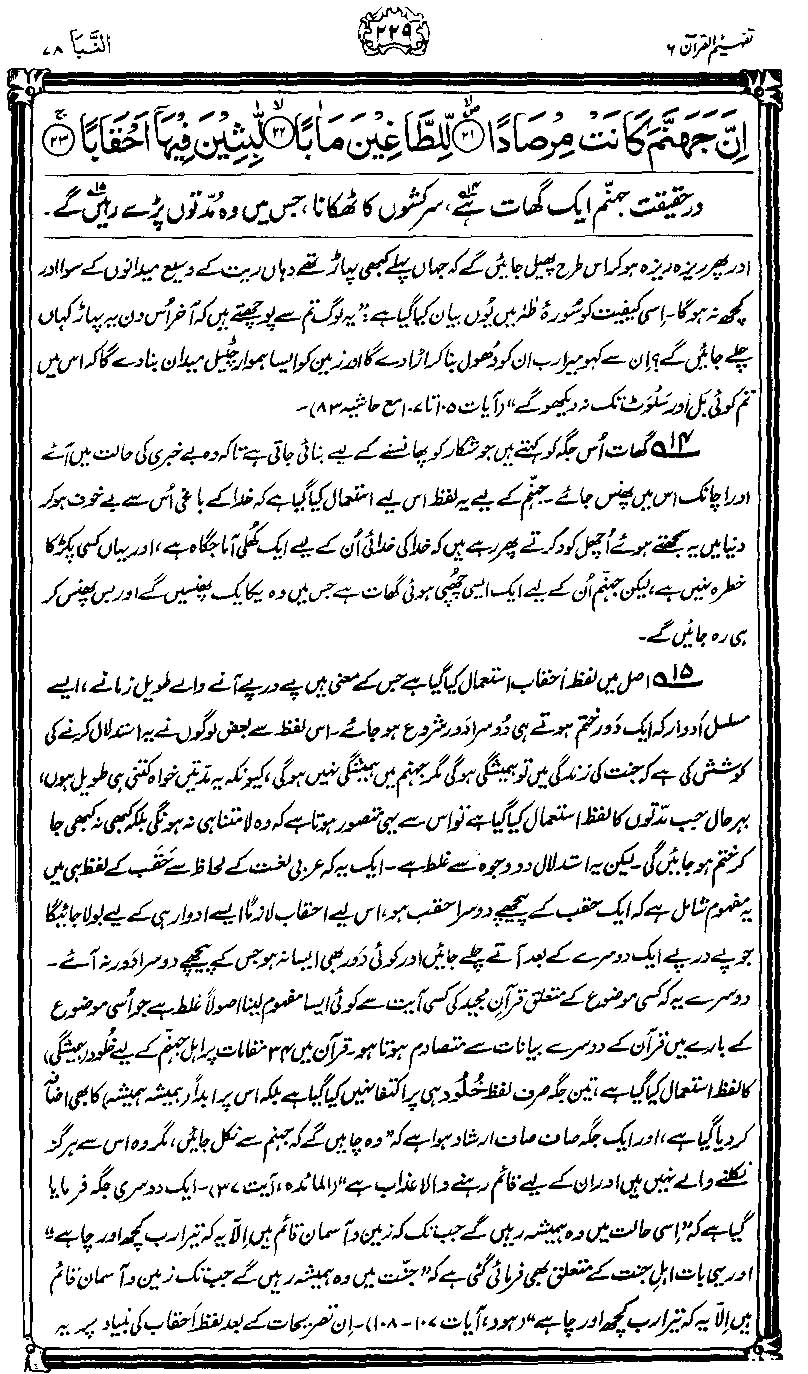 تفہیم القرآن ۶
۲۲۹
النَّبَا ۷۸
اِنَّ جَهَنَّمَ كَانَتْ مِرْصَادًا ۙ۲۱ لِّلطَّاغِيْنَ مَاٰبًا ۙ۲۲ لّٰبِثِيْنَ فِيْهَاۤ اَحْقَابًا ۚ۲۳
درحقیقت جہنّم ایک گھات ہے۱۴، سرکشوں کا ٹھکانا، جس میں وہ مُدّتوں پڑے رہیں۱۵ گے۔
اور پھر ریزہ ریزہ ہو کر اس طرح پھیل جائیں گے کہ جہاں پہلے کبھی پہاڑ تھے وہاں ریت کے وسیع میدانوں کے سوا اور
کچھ نہ ہوگا۔ اِسی کیفیت کو سُورۂ طٰہٰ میں یُوں بیان کیا گیا ہے: ”یہ لوگ تم سے پوچھتے ہیں کہ آخر اُس دن یہ پہاڑ کہاں
چلے جائیں گے؟ ان سے کہو میرا رب ان کو دُھول بنا کر اڑا دے گا اور زمین کو ایسا ہموار چٹیل میدان بنا دے گا کہ اس میں
تم کوئی بَل اور سَلوَٹ تک نہ دیکھو گے“ (آیات ۱۰۵ تا ۱۰۷ مع حاشیہ ۸۳)۔
۱۴؎ گھات اُس جگہ کو کہتے ہیں جو شکار کو پھانسنے کے لیے بنائی جاتی ہے تاکہ وہ بے خبری کی حالت میں آئے
اور اچانک اس میں پھنس جائے۔ جہنّم کے لیے یہ لفظ اس لیے استعمال کیا گیا ہے کہ خدا کے باغی اُس سے بے خوف ہو کر
دنیا میں یہ سمجھتے ہوئے اُچھل کود کرتے پھر رہے ہیں کہ خدا کی خدائی اُن کے لیے ایک کُھلی آماجگاہ ہے، اور یہاں کسی پکڑ کا
خطرہ نہیں ہے، لیکن جہنّم اُن کے لیے ایک ایسی چُھپی ہوئی گھات ہے جس میں وہ یکایک پھنسیں گے اور بس پھنس کر
ہی رہ جائیں گے۔
۱۵؎ اصل میں لفظ اَحقاب استعمال کیا گیا ہے جس کے معنی ہیں پے در پے آنے والے طویل زمانے، ایسے
مسلسل اَدوار کہ ایک دَور ختم ہوتے ہی دُوسرا دَور شروع ہو جائے۔ اس لفظ سے بعض لوگوں نے یہ استدلال کرنے کی
کوشش کی ہے کہ جنت کی زندگی میں تو ہمیشگی ہوگی مگر جہنم میں ہمیشگی نہیں ہوگی، کیونکہ یہ مدّتیں خواہ کتنی ہی طویل ہوں،
بہرحال جب مدّتوں کا لفظ استعمال کیا گیا ہے تو اس سے یہی متصور ہوتا ہے کہ وہ لامتناہی نہ ہونگی بلکہ کبھی نہ کبھی جا
کر ختم ہو جائیں گی۔ لیکن یہ استدلال دو وجوہ سے غلط ہے۔ ایک یہ کہ عربی لغت کے لحاظ سے حَقَب کے لفظ ہی میں
یہ مفہوم شامل ہے کہ ایک حقب کے پیچھے دوسرا حقب ہو، اس لیے احقاب لازمًا ایسے ادوار ہی کے لیے بولا جائیگا
جو پے در پے ایک دوسرے کے بعد آتے چلے جائیں اور کوئی دَور بھی ایسا نہ ہو جس کے پیچھے دوسرا دَور نہ آئے۔
دوسرے یہ کہ کسی موضوع کے متعلق قرآنِ مجید کی کسی آیت سے کوئی ایسا مفہوم لینا اصولاً غلط ہے جو اُسی موضوع
کے بارے میں قرآن کے دوسرے بیانات سے متصادم ہوتا ہو۔ قرآن میں ۳۴ مقامات پر اہلِ جہنّم کے لیے خُلود (ہمیشگی)
کا لفظ استعمال کیا گیا ہے، تین جگہ صرف لفظ خُلُود ہی پر اکتفا نہیں کیا گیا ہے بلکہ اس پر اَبداً (ہمیشہ ہمیشہ) کا بھی اضافہ
کر دیا گیا ہے، اور ایک جگہ صاف صاف ارشاد ہوا ہے کہ ”وہ چاہیں گے کہ جہنم سے نکل جائیں، مگر وہ اس سے ہرگز
نکلنے والے نہیں ہیں اور ان کے لیے قائم رہنے والا عذاب ہے“ (المائدہ، آیت ۳۷)۔ ایک دوسری جگہ فرمایا
گیا ہے کہ ”اِسی حالت میں وہ ہمیشہ رہیں گے جب تک کہ زمین و آسمان قائم ہیں اِلّا یہ کہ تیرا رب کچھ اور چاہے“
اور یہی بات اہلِ جنت کے متعلق بھی فرمائی گئی ہے کہ ”جنّت میں وہ ہمیشہ رہیں گے جب تک زمین و آسمان قائم
ہیں اِلّا یہ کہ تیرا رب کچھ اور چاہے“ (ہود، آیات ۱۰۷۔۱۰۸)۔ اِن تصریحات کے بعد لفظ اَحقاب کی بنیاد پر یہ